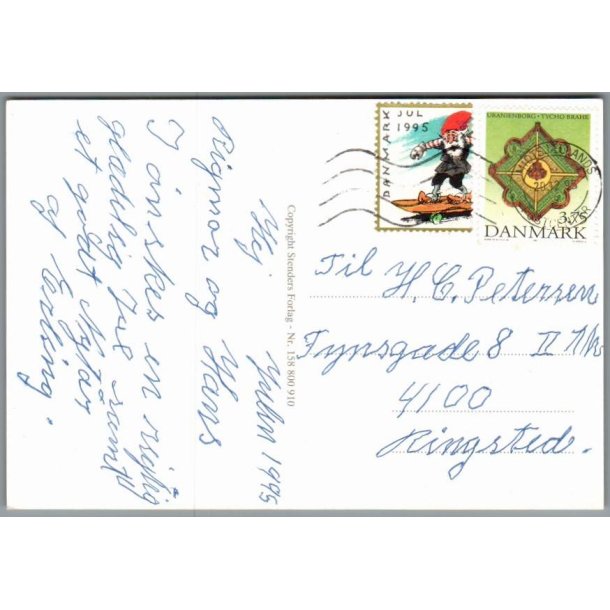 JUL
1995
DANMARK
URANIENBORG · TYCHO BRAHE
3.75
DANMARK
Julen 1995
Hej
Rigmor og Hans
I ønskes en rigtig
glædelig Jul samt
et godt Nytår
og
Erling.
Copyright Stenders Forlag - Nr. 158 800 910
Til H. C. Petersen
Fynsgade 8 II
4100
Ringsted.